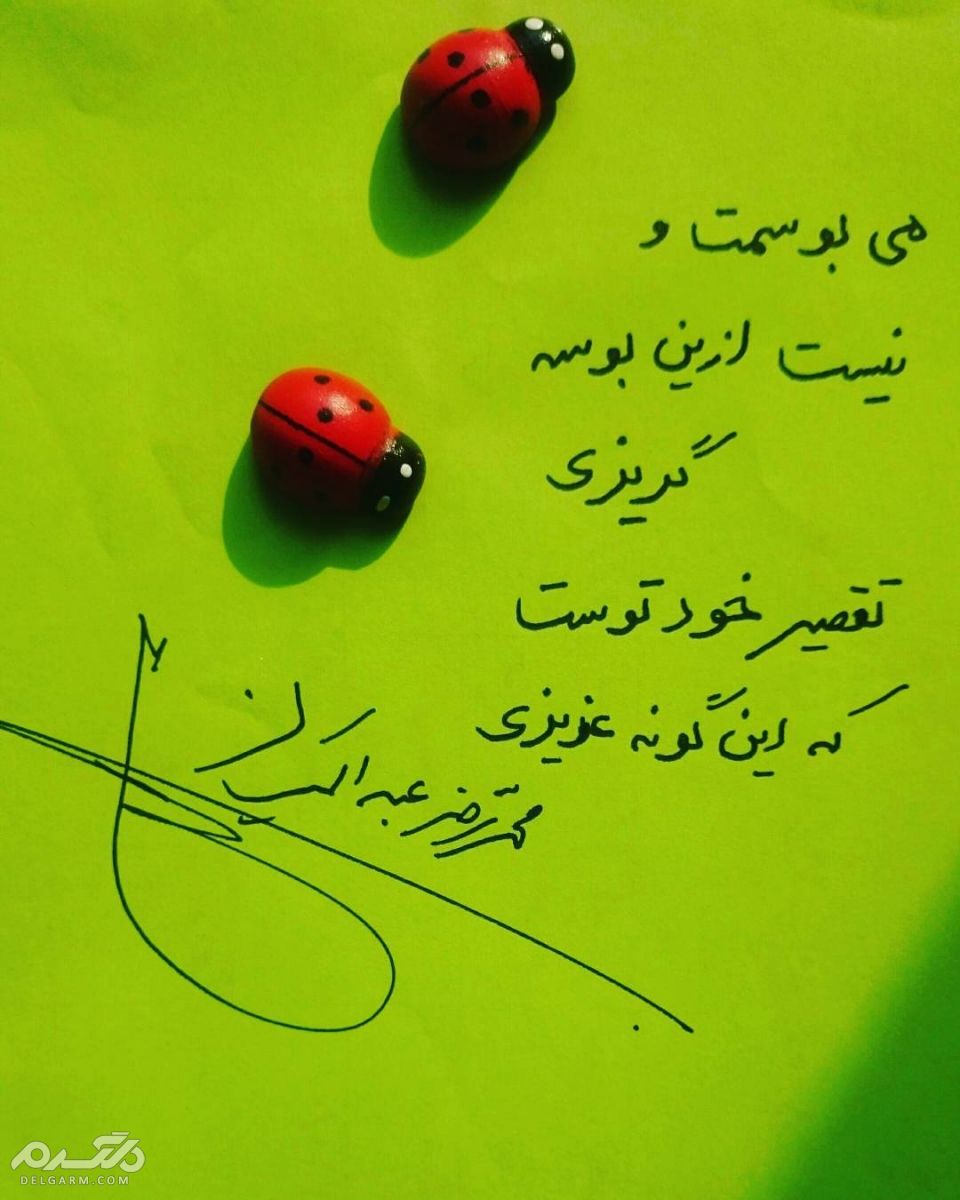 می بوسمت و
نیست ازین بوسه
گریزی
تقصیر خود توست
که این گونه عزیزی
محمدرضا عبدالملکیان
دلگرم
DELGARM.COM